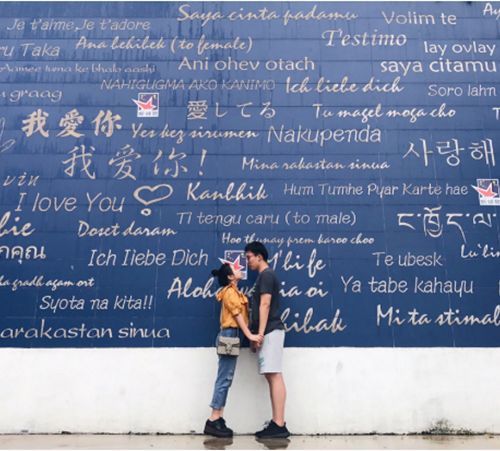 Saya cinta padamu
Volim te
Je t'aime, Je t'adore
Ana behibek (to female)
Testimo
lay ovlay
ru Taka
Ani ohev otach
saya citamu
NAHIGUGMA AKO KANIMO
Ich liebe dich
Soro lahn
u graag
我爱你
Yes kez sirumen
愛してる
Tu magel moga cho
Nakupenda
사랑해
我爱你!
Mina rakastan sinua
I love You
Kanbhik
Hum Tumhe Pyar Karte hae
Doset daram
Ti tengu caru (to male)
Hoo thunay prem karoo choo
Ich liebe Dich
Te ubesk
Aloh
Ya tabe kahayu
ha gradh agam ort
Syota na kita!!
hibak
Mi ta stimab
arakastan sinua